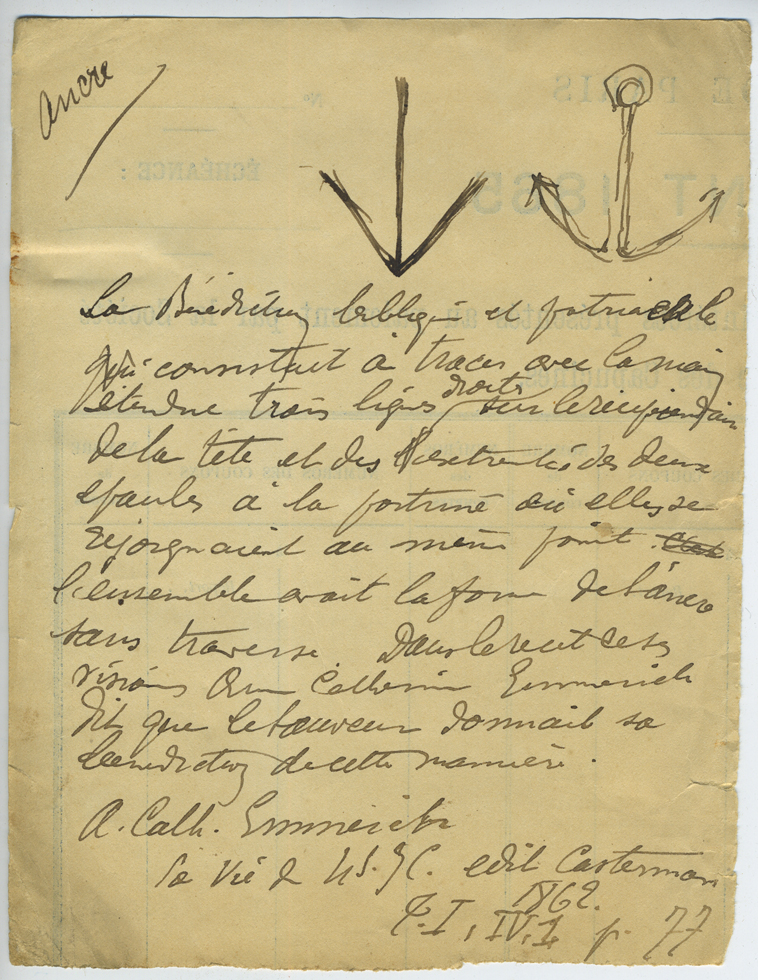 Ancre
La Bénédiction biblique et patriarcale
qui consistait à tracer avec la main
étendue trois lignes droites sur le récipiendaire
de la tête et des extremités des deux
epaules à la poitrine où elles se
rejoignaient au même point.
l'ensemble avait la forme de l'ancre
sans traverse. Dans le recit de ses
visions Anne Catherine Emmerich
dit que le Sauveur donnait sa
benediction de cette manière.
A. Cath. Emmerich
La Vie de N.S. J.C. edit Casterman
1862.
T. I, IV. 1 p. 77